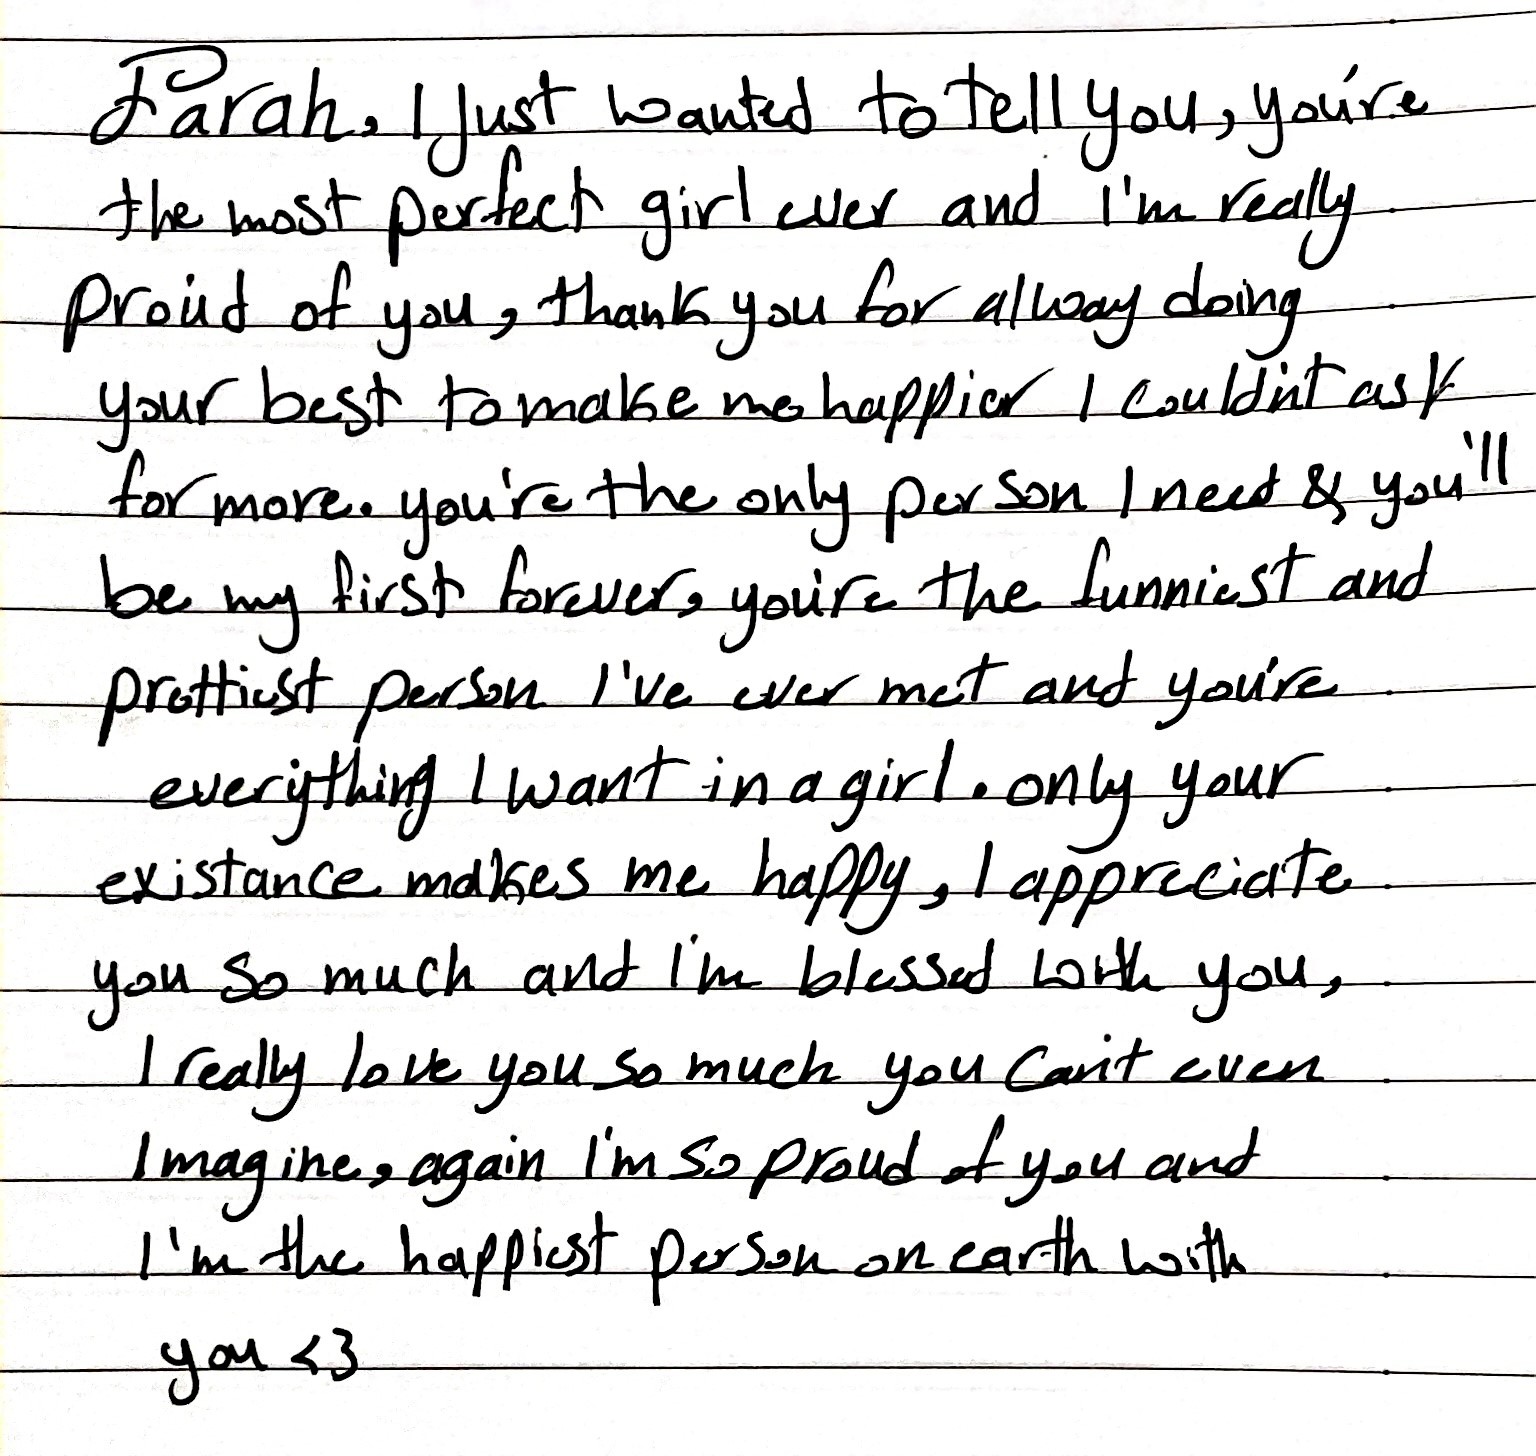 Farah, I Just wanted to tell you, you're
the most perfect girl ever and I'm really
proud of you, thank you for alway doing
your best to make me happier I couldn't ask
for more. you're the only person I need & you'll
be my first forever, you're the funniest and
prettiest person I've ever met and you're
everything I want in a girl. only your
existance makes me happy, I appreciate
you so much and I'm blessed with you,
I really love you so much you can't even
Imagine, again I'm so proud of you and
I'm the happiest person on earth with
you <3